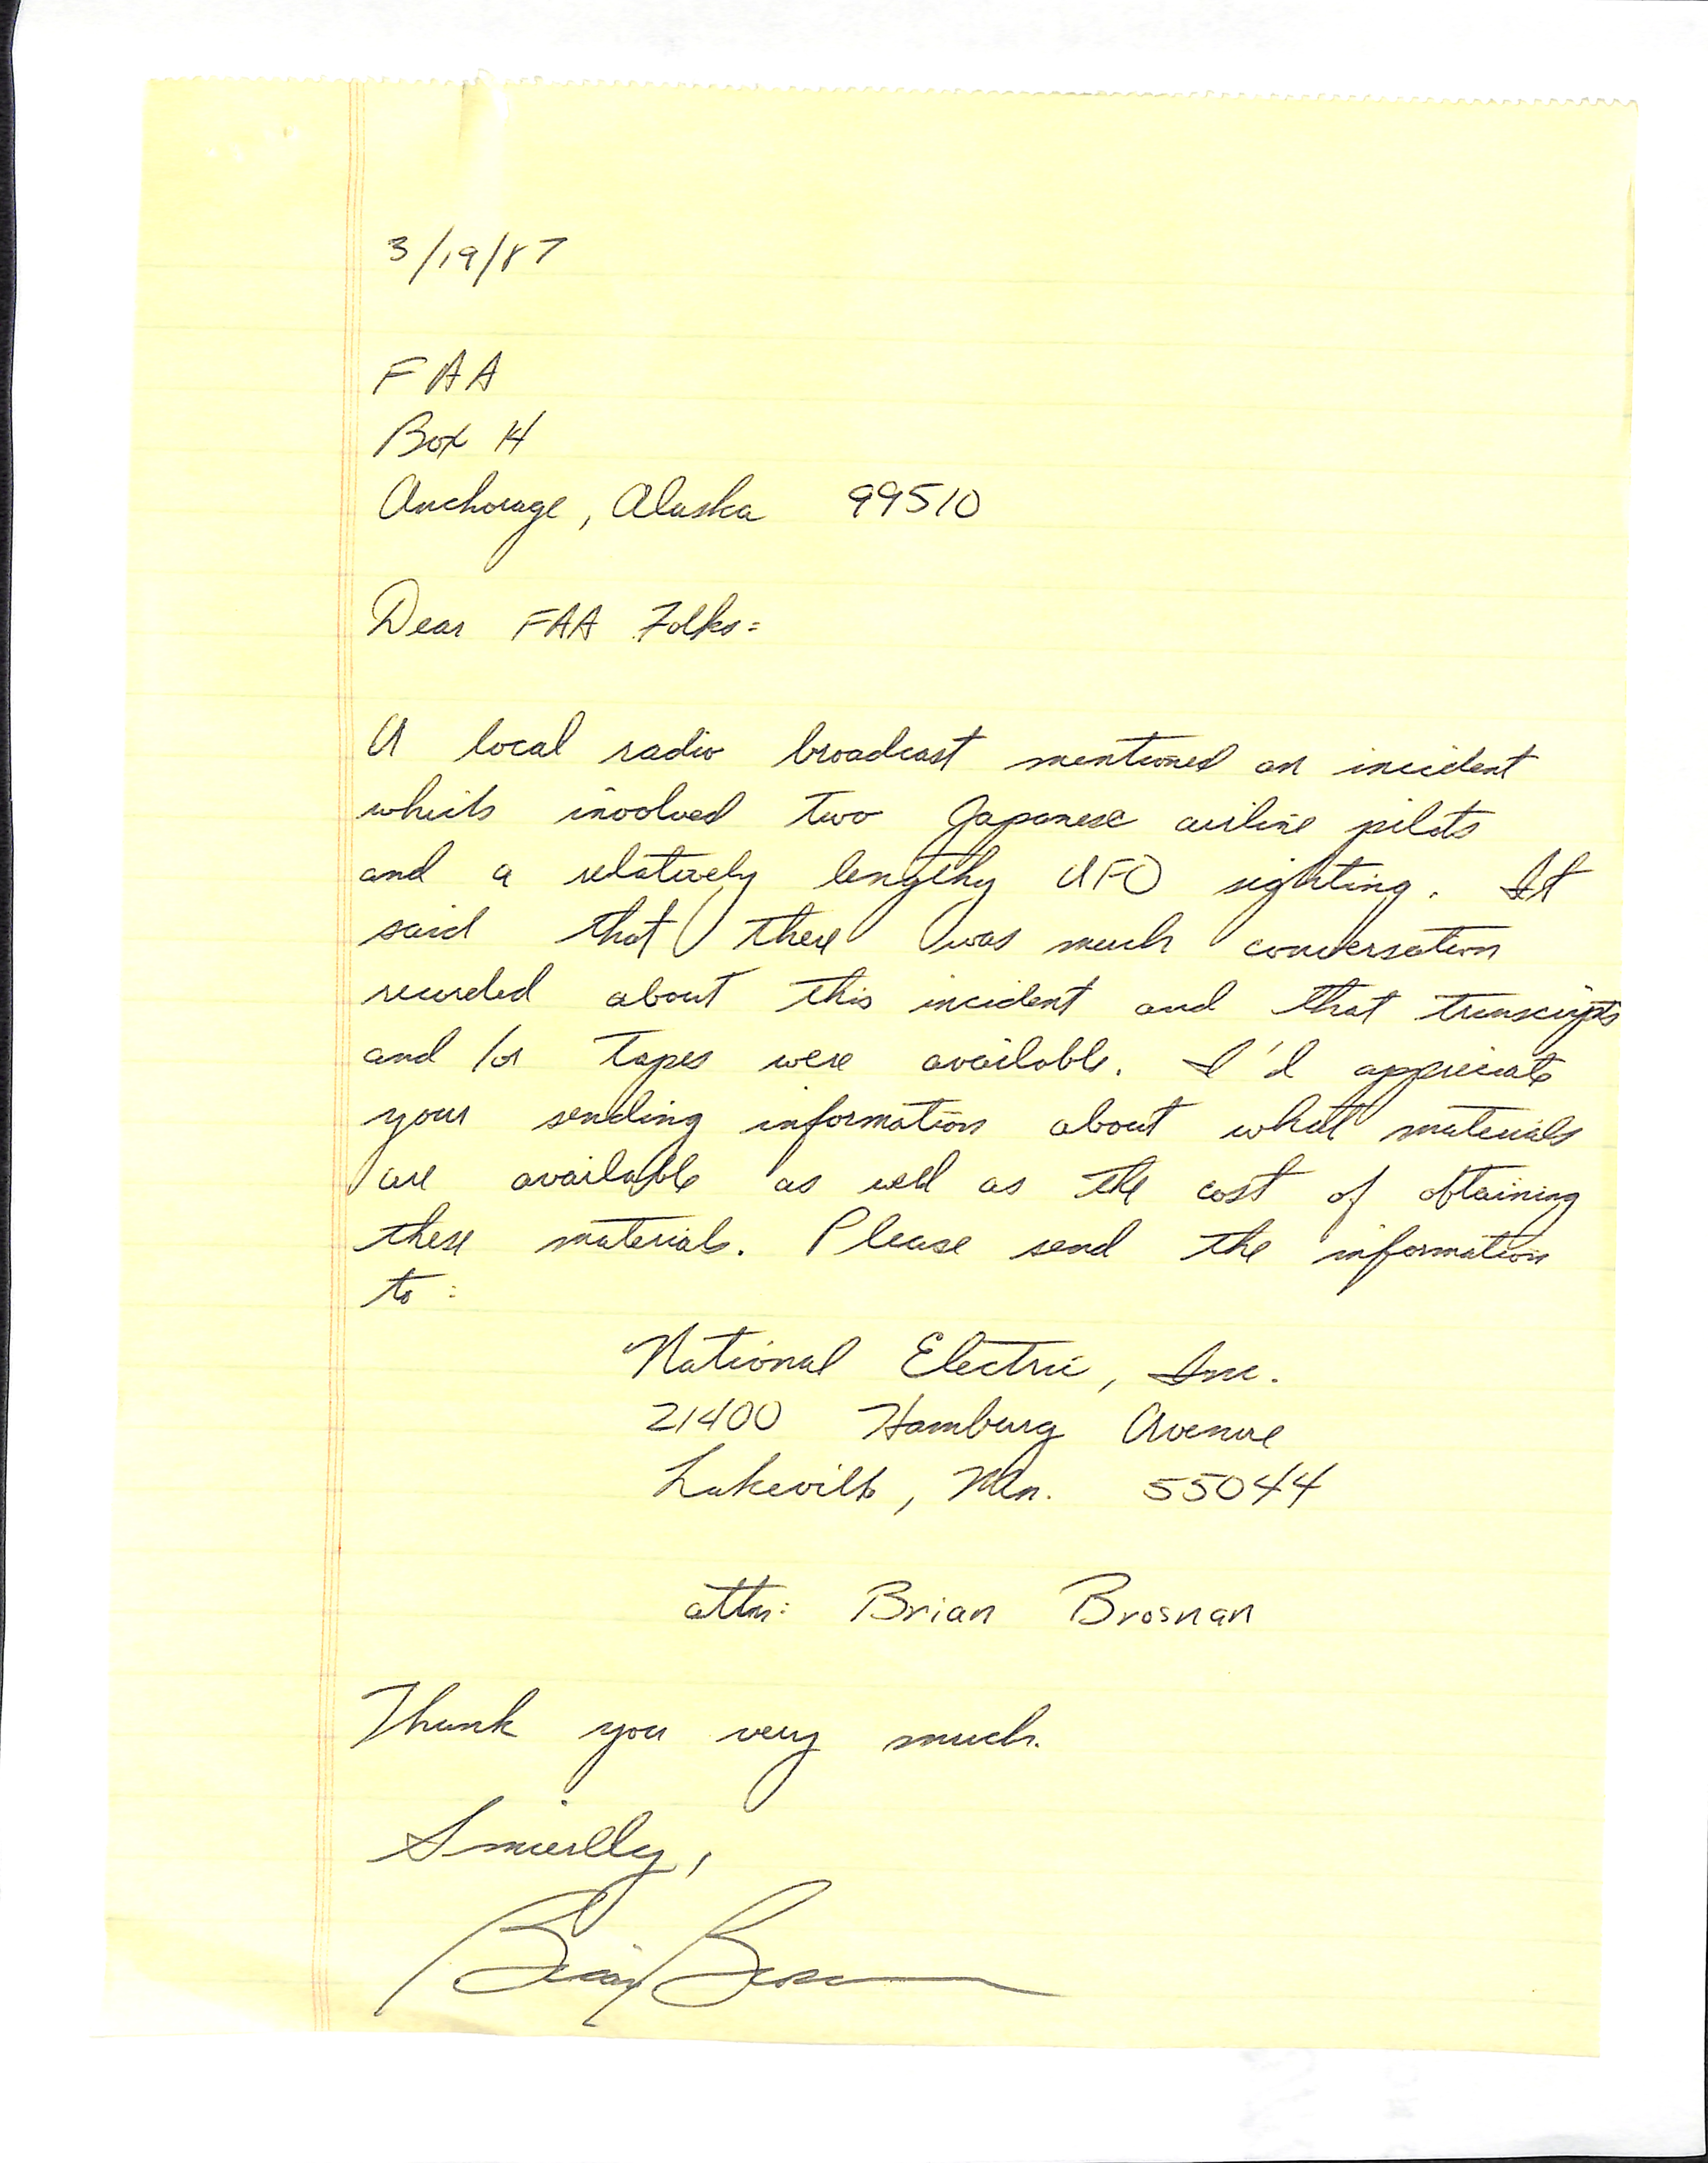 3/19/87
FAA
Box 14
Anchorage, Alaska 99510
Dear FAA Folks:
A local radio broadcast mentioned an incident
which involved two Japanese airline pilots
and a relatively lengthy UFO sighting. It
said that there was much conversation
recorded about this incident and that transcripts
and/or tapes were available. I'd appreciate
your sending information about what materials
are available as well as the cost of obtaining
these materials. Please send the information
to:
National Electric, Inc.
21400 Hamburg Avenue
Lakeville, Mn. 55044
attn: Brian Brosnan
Thank you very much.
Sincerely,
Brian Brosnan